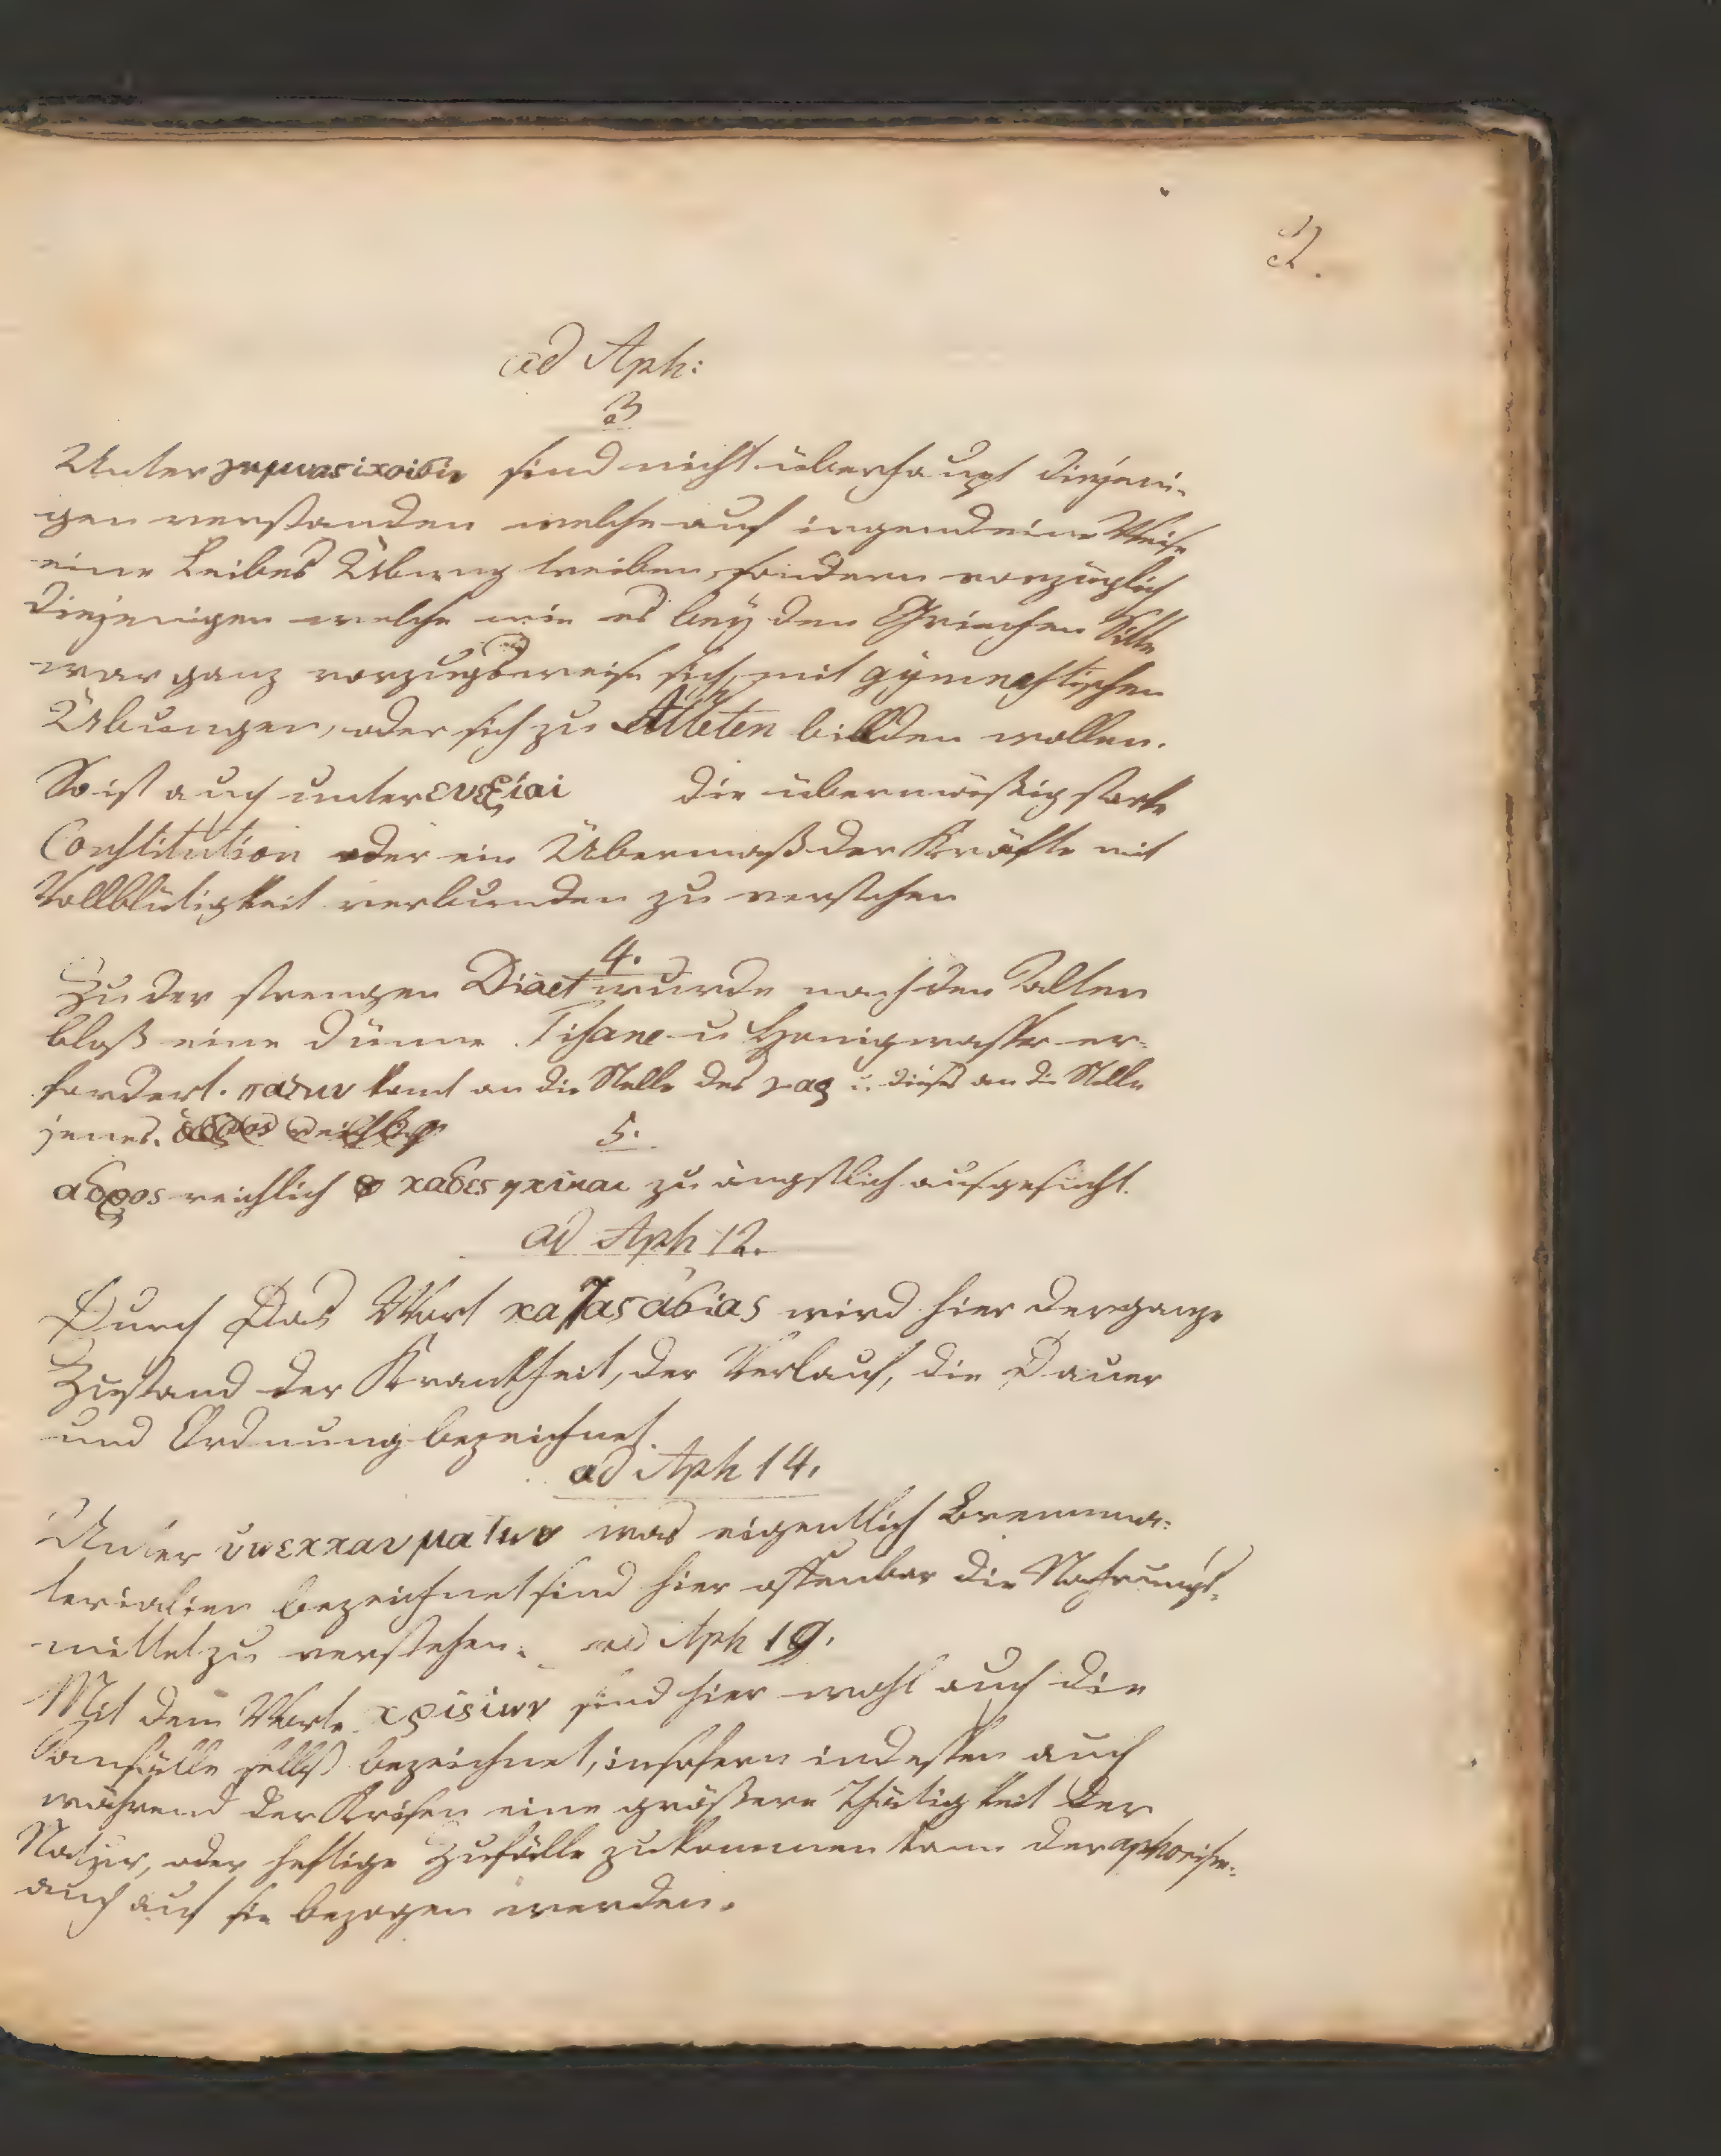 2.
ad Aph:
3
Unter γυμναςικοισιν sind nicht überhaupt diejeni-
gen verstanden welche auf irgend eine Weise
eine Leibes Übung treiben, sondern vorzüglich
diejenigen welche wie es bey den Griechen Sitte
war ganz vorzugsweise sich mit gymnastischen
Übungen, oder sich zu Athleten bilden wollen.
So ist auch unter ευεξίαι die übermäßig starke
Constitution oder ein Übermaß der Kräfte mit
Vollblütigkeit verbunden zu verstehen
4.
Zu der strengen Diaet wurde nach den Alten
bloß eine dünne Tisane u Honigwasser er-
fordert. komt an die Stelle des γαρ u. dieses an die Stelle
jenes.
5.
αδρος reichlich καθεςηκυιαι zu ängstlich ausgesucht.
ad Aph 12.
Durch Das Wort καταςασιας wird hier der ganze
Zustand der Krankheit, der Verlauf, die Dauer
und Ordnung bezeichnet.
ad Aph 14.
Unter ὑπεκκαυματων was eigentlich Brennma-
terialien bezeichnet sind hier offenbar die Nahrungs-
mittel zu verstehen. ad Aph 19.
Mit dem Worte κρισιων sind hier wohl auch die
anfälle selbst bezeichnet, insofern indessen auch
während der Krisen eine größere Thätigkeit der
Natur, oder heftige Zufälle zukommen kann der
auch auf sie bezogen werden.